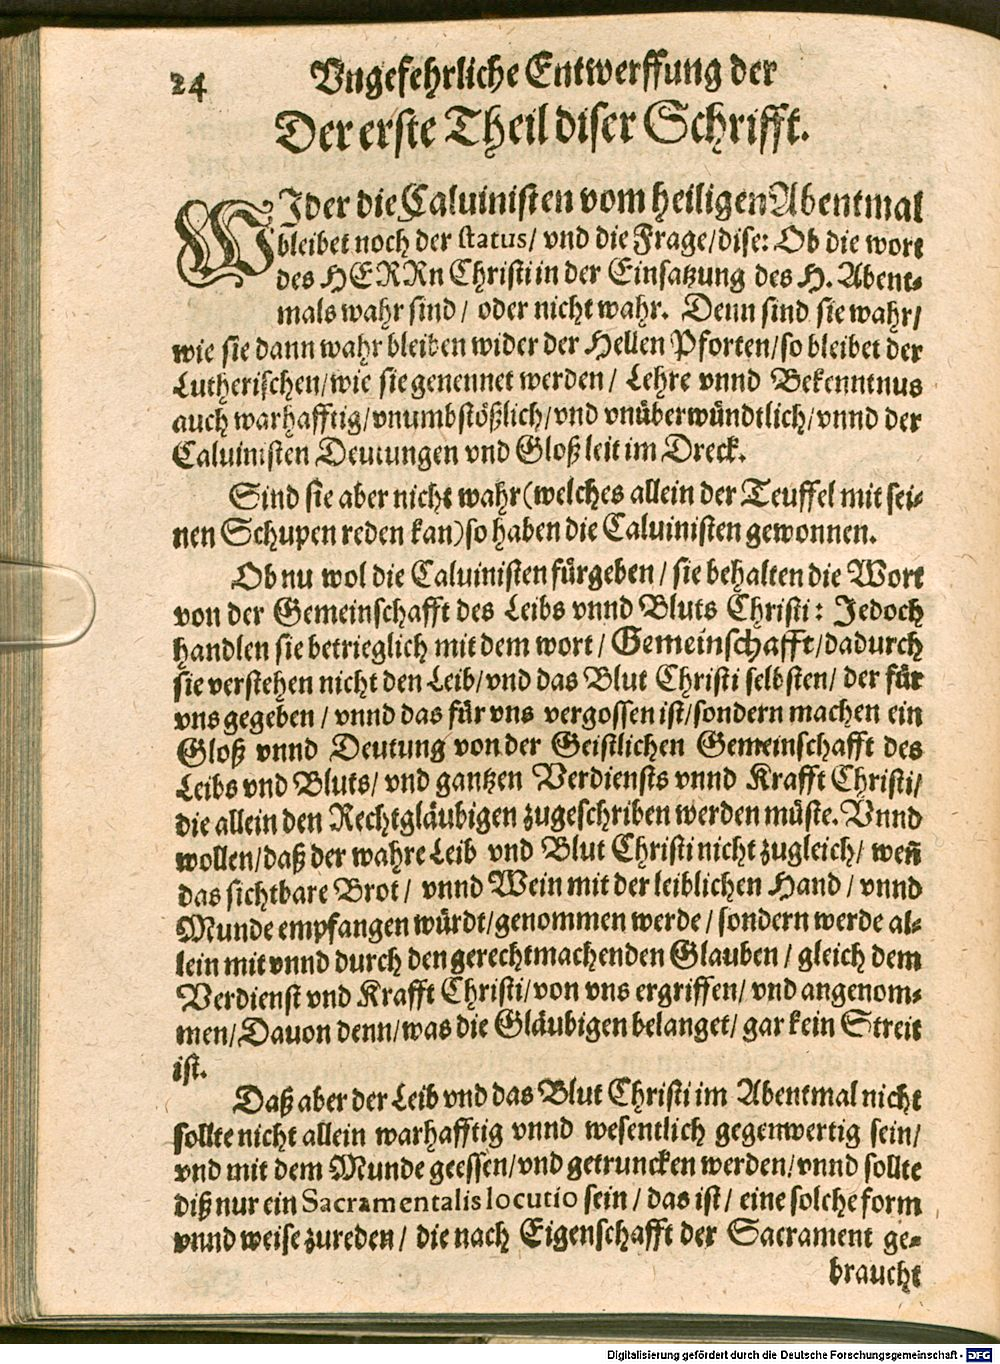 24 Vngefehrliche Entwerffung der
Der erste Theil diser Schrifft.
WIder die Caluinisten vom heiligen Abentmal
bleibet noch der status/ vnd die Frage/dise: Ob die wort
des HERRn Christi in der Einsatzung des H. Abent-
mals wahr sind/ oder nicht wahr. Denn sind sie wahr/
wie sie dann wahr bleiben wider der Hellen Pforten/so bleibet der
Lutherischen/wie sie genennet werden/ Lehre vnnd Bekenntnus
auch warhafftig/vnumbstößlich/vnd vnüberwündtlich/vnnd der
Caluinisten Deutungen vnd Gloß leit im Dreck.
Sind sie aber nicht wahr(welches allein der Teuffel mit sei-
nen Schupen reden kan)so haben die Caluinisten gewonnen.
Ob nu wol die Caluinisten fürgeben/ sie behalten die Wort
von der Gemeinschafft des Leibs vnnd Bluts Christi: Jedoch
handlen sie betrieglich mit dem wort/ Gemeinschafft/dadurch
sie verstehen nicht den Leib/vnd das Blut Christi selbsten/ der für
vns gegeben/ vnnd das für vns vergossen ist/sondern machen ein
Gloß vnnd Deutung von der Geistlichen Gemeinschafft des
Leibs vnd Bluts/ vnd gantzen Verdiensts vnnd Krafft Christi/
die allein den Rechtgläubigen zugeschriben werden müste. Vnnd
wollen/daß der wahre Leib vnd Blut Christi nicht zugleich/ weñ
das sichtbare Brot/ vnnd Wein mit der leiblichen Hand/ vnnd
Munde empfangen würdt/genommen werde/ sondern werde al-
lein mit vnnd durch den gerechtmachenden Glauben/ gleich dem
Verdienst vnd Krafft Christi/von vns ergriffen/ vnd angenom-
men/Dauon denn/was die Gläubigen belanget/ gar kein Streit
ist.
Daß aber der Leib vnd das Blut Christi im Abentmal nicht
sollte nicht allein warhafftig vnnd wesentlich gegenwertig sein/
vnd mit dem Munde geessen/vnd getruncken werden/vnnd sollte
diß nur ein Sacramentalis locutio sein/ das ist/ eine solche form
vnnd weise zureden/ die nach Eigenschafft der Sacrament ge-
braucht
Digitalisierung gefördert durch die Deutsche Forschungsgemeinschaft - DFG